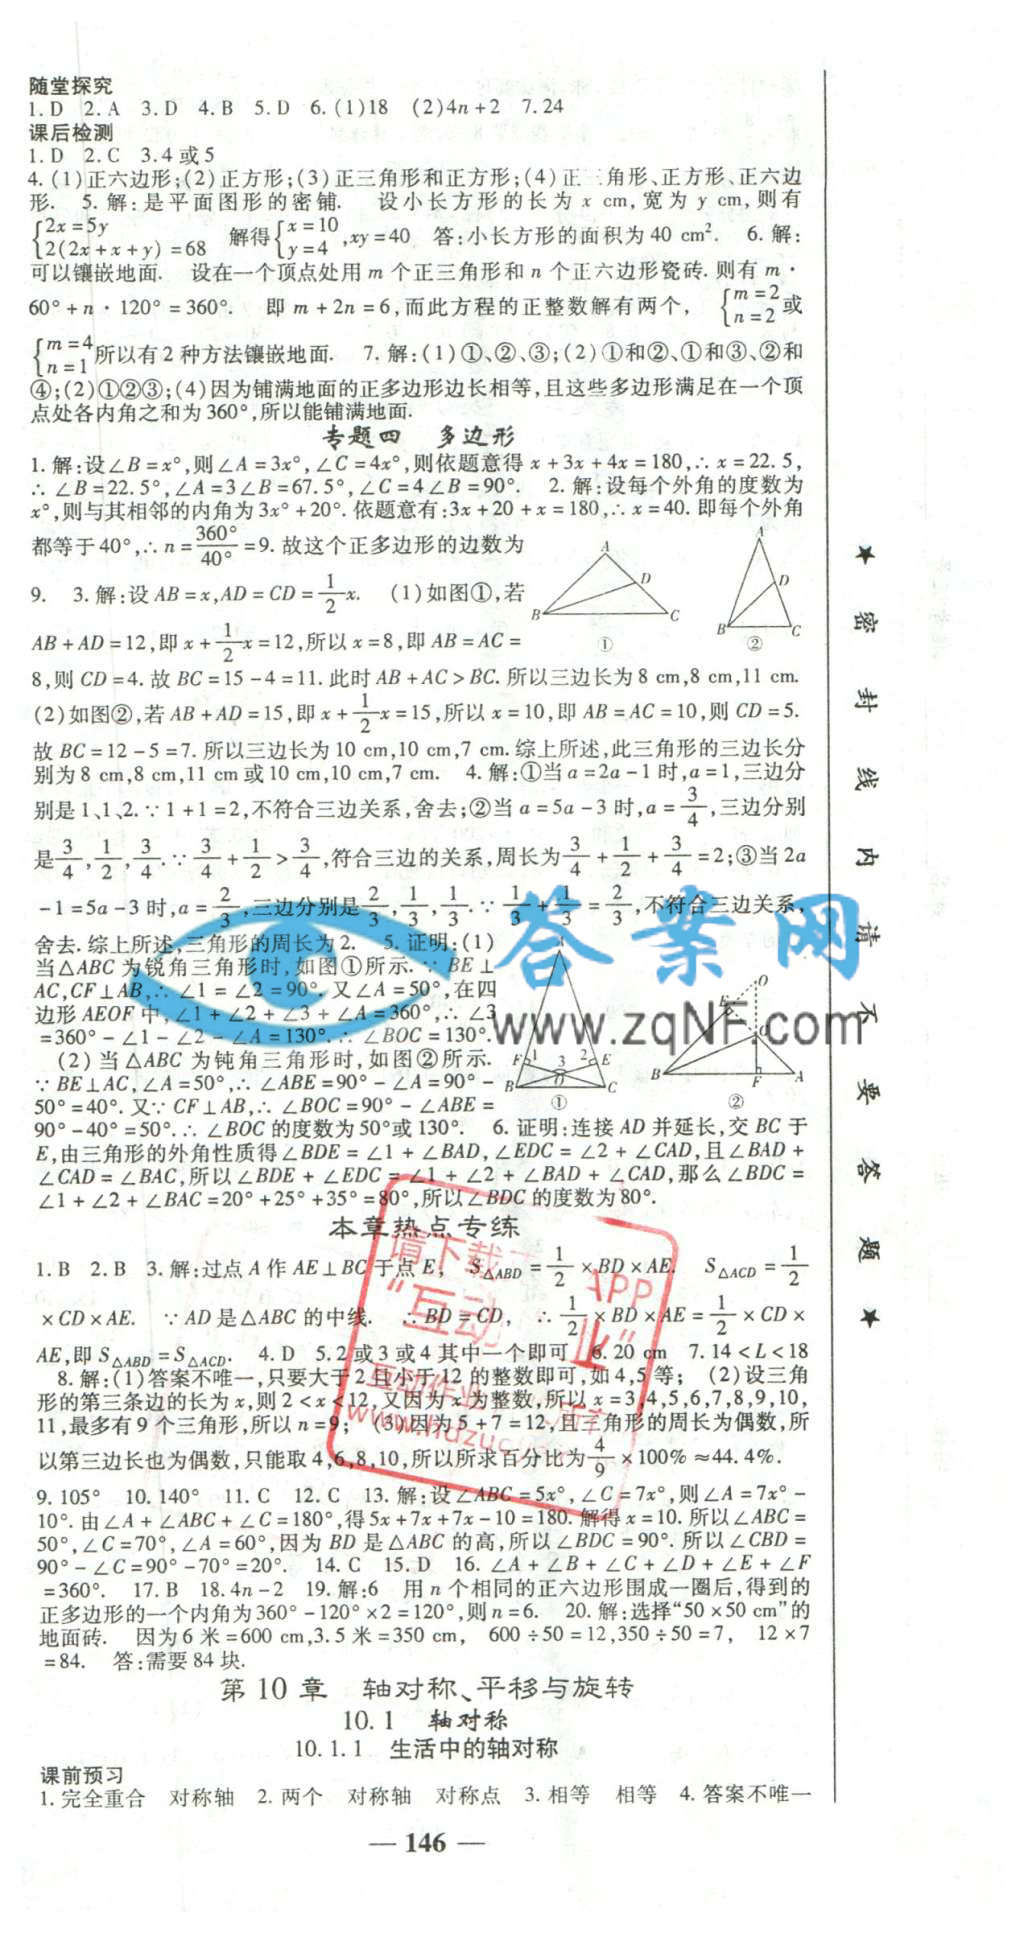 随堂探究
1. D 2. A 3. D 4. B 5. D 6. (1)18 (2)4n+2 7. 24
课后检测
1. D 2. C 3. 4 或 5
4. (1)正六边形;(2)正方形;(3)正三角形和正方形;(4)正三角形、正方形、正六边
形. 5. 解:是平面图形的密铺. 设小长方形的长为 x cm,宽为 y cm,则有
{2x=5y 2(2x+x+y)=68 解得{x=10 y=4 ,xy=40 答:小长方形的面积为 40 cm². 6. 解:
可以镶嵌地面. 设在一个顶点处用 m 个正三角形和 n 个正六边形瓷砖. 则有 m·
60°+n·120°=360°. 即 m+2n=6,而此方程的正整数解有两个, {m=2 n=2 或
{m=4 n=1 所以有 2 种方法镶嵌地面. 7. 解:(1)①、②、③;(2)①和②、①和③、②和
④;(2)①②③;(4)因为铺满地面的正多边形边长相等,且这些多边形满足在一个顶
点处各内角之和为 360°,所以能铺满地面.
专题四 多边形
1. 解:设∠B=x°,则∠A=3x°,∠C=4x°,则依题意得 x+3x+4x=180,∴x=22.5,
∴∠B=22.5°,∠A=3∠B=67.5°,∠C=4∠B=90°. 2. 解:设每个外角的度数为
x°,则与其相邻的内角为 3x°+20°. 依题意有:3x+20+x=180,∴x=40. 即每个外角
都等于 40°,∴n=360°/40°=9. 故这个正多边形的边数为
9. 3. 解:设 AB=x,AD=CD=1/2x. (1)如图①,若
AB+AD=12,即 x+1/2x=12,所以 x=8,即 AB=AC=
A D B C ① A D B C ②
8,则 CD=4. 故 BC=15-4=11. 此时 AB+AC>BC. 所以三边长为 8 cm,8 cm,11 cm.
(2)如图②,若 AB+AD=15,即 x+1/2x=15,所以 x=10,即 AB=AC=10,则 CD=5.
故 BC=12-5=7. 所以三边长为 10 cm,10 cm,7 cm. 综上所述,此三角形的三边长分
别为 8 cm,8 cm,11 cm 或 10 cm,10 cm,7 cm. 4. 解:①当 a=2a-1 时,a=1,三边分
别是 1、1、2. ∵1+1=2,不符合三边关系,舍去;②当 a=5a-3 时,a=3/4,三边分别
是3/4,1/2,3/4. ∵3/4+1/2>3/4,符合三边的关系,周长为3/4+1/2+3/4=2;③当 2a
-1=5a-3 时,a=2/3,三边分别是2/3,1/3,1/3. ∵1/3+1/3=2/3,不符合三边关系,
舍去. 综上所述,三角形的周长为 2. 5. 证明:(1)
当△ABC 为锐角三角形时,如图①所示. ∵BE⊥
AC,CF⊥AB,∴∠1=∠2=90°. 又∠A=50°,在四
边形 AEOF 中,∠1+∠2+∠3+∠A=360°,∴∠3
=360°-∠1-∠2-∠A=130°. ∴∠BOC=130°.
(2)当△ABC 为钝角三角形时,如图②所示.
∵BE⊥AC,∠A=50°,∴∠ABE=90°-∠A=90°-
50°=40°. 又∵CF⊥AB,∴∠BOC=90°-∠ABE=
F 1 3 2 E B O C ① O E B F A ②
90°-40°=50°. ∴∠BOC 的度数为 50°或 130°. 6. 证明:连接 AD 并延长,交 BC 于
E,由三角形的外角性质得∠BDE=∠1+∠BAD,∠EDC=∠2+∠CAD,且∠BAD+
∠CAD=∠BAC,所以∠BDE+∠EDC=∠1+∠2+∠BAD+∠CAD,那么∠BDC=
∠1+∠2+∠BAC=20°+25°+35°=80°,所以∠BDC 的度数为 80°.
本章热点专练
1. B 2. B 3. 解:过点 A 作 AE⊥BC 于点 E, S△ABD=1/2×BD×AE. S△ACD=1/2
×CD×AE. ∵AD 是△ABC 的中线. ∴BD=CD, ∴1/2×BD×AE=1/2×CD×
AE,即 S△ABD=S△ACD. 4. D 5. 2 或 3 或 4 其中一个即可 6. 20 cm 7. 14<L<18
8. 解:(1)答案不唯一,只要大于 2 且小于 12 的整数即可,如 4,5 等; (2)设三角
形的第三条边的长为 x,则 2<x<12,又因为 x 为整数,所以 x=3,4,5,6,7,8,9,10,
11,最多有 9 个三角形,所以 n=9; (3)因为 5+7=12,且三角形的周长为偶数,所
以第三边长也为偶数,只能取 4,6,8,10,所以所求百分比为4/9×100%≈44.4%.
9. 105° 10. 140° 11. C 12. C 13. 解:设∠ABC=5x°,∠C=7x°,则∠A=7x°-
10°. 由∠A+∠ABC+∠C=180°,得 5x+7x+7x-10=180. 解得 x=10. 所以∠ABC=
50°,∠C=70°,∠A=60°,因为 BD 是△ABC 的高,所以∠BDC=90°. 所以∠CBD=
90°-∠C=90°-70°=20°. 14. C 15. D 16. ∠A+∠B+∠C+∠D+∠E+∠F
=360°. 17. B 18. 4n-2 19. 解:6 用 n 个相同的正六边形围成一圈后,得到的
正多边形的一个内角为 360°-120°×2=120°,则 n=6. 20. 解:选择“50×50 cm”的
地面砖. 因为 6 米=600 cm,3.5 米=350 cm, 600÷50=12,350÷50=7, 12×7
=84. 答:需要 84 块.
第 10 章 轴对称、平移与旋转
10.1 轴对称
10.1.1 生活中的轴对称
课前预习
1. 完全重合 对称轴 2. 两个 对称轴 对称点 3. 相等 相等 4. 答案不唯一
— 146 —
★密封线内请不要答题★
答案网
www.zqNF.com
请下载
APP
“互动 业”
互动作业